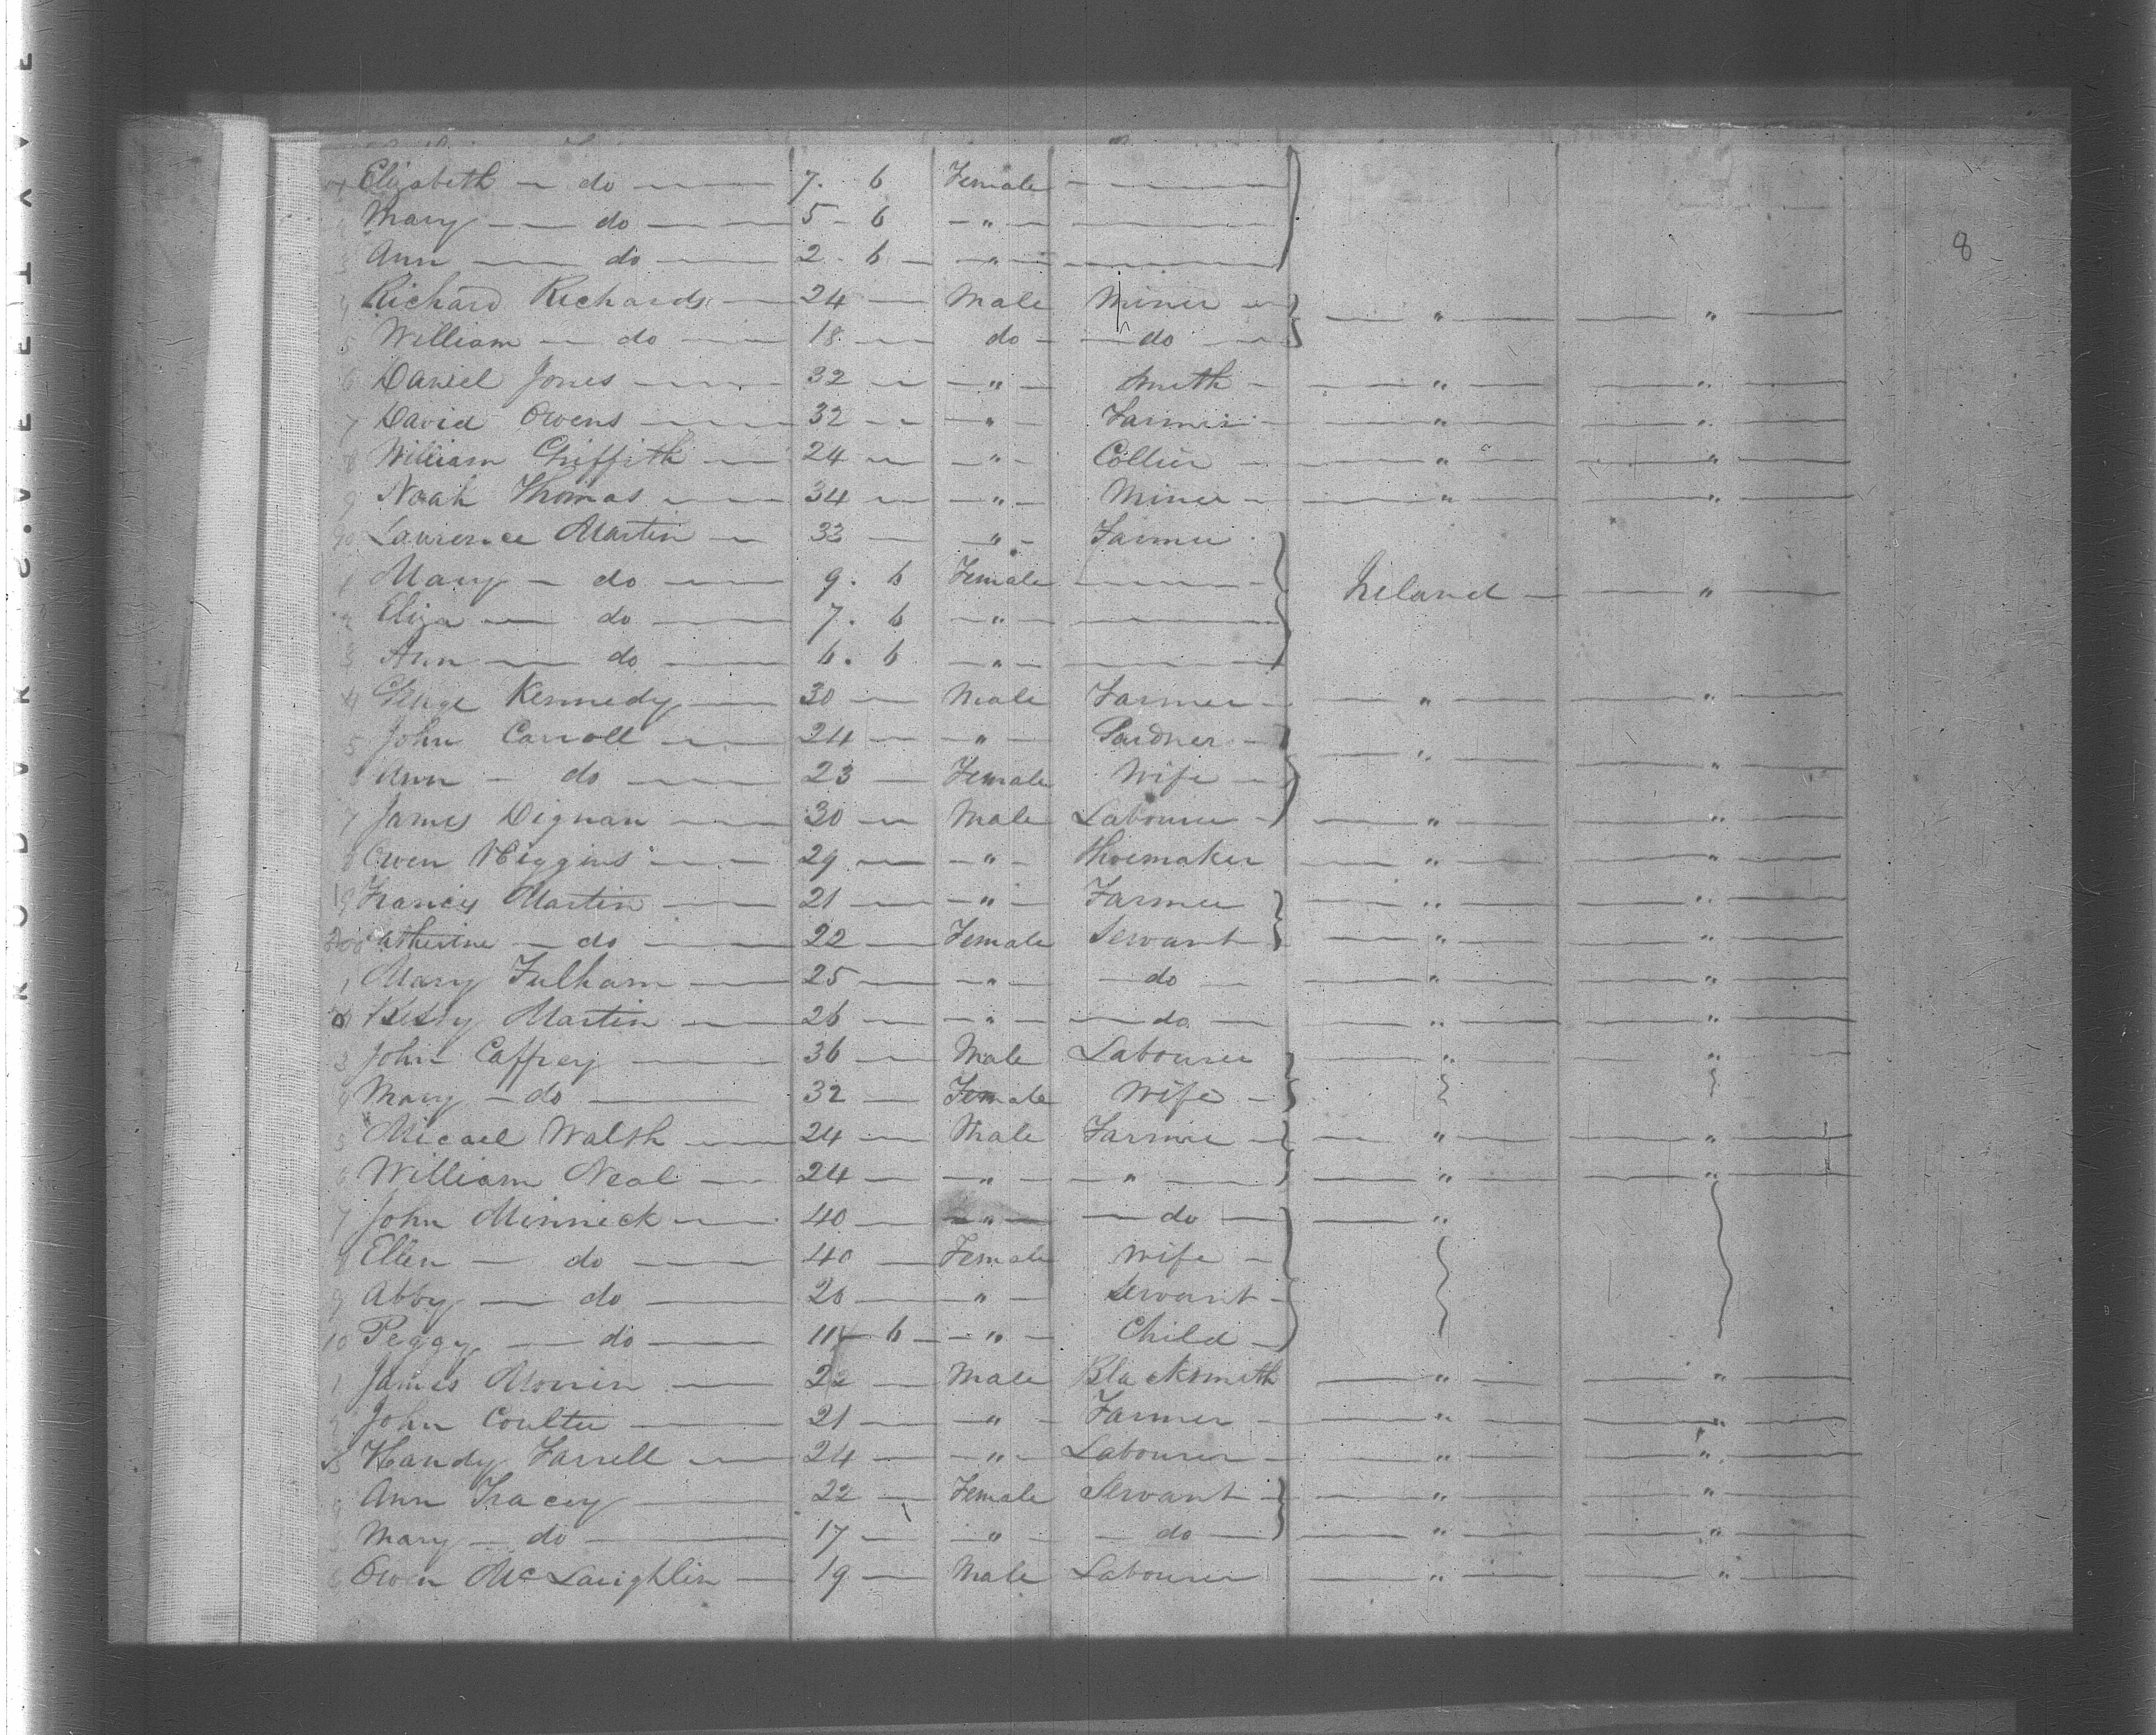 Elizabeth — do — 7. 6 Female
Mary — do — 5 - 6 — " —
Ann — do — 2 . 6 — " —
Richard Richards — 24 — Male Miner — " — — " —
5 William — do — 18 — do — do —
6 Daniel Jones — 32 — — " — Smith — — " — — " —
7 David Owens — 32 — — " — Farmer — — " — — " —
8 William Griffith — 24 — — " — Collier — — " — — " —
9 Noah Thomas — 34 — — " — Miner — — " — — " —
90 Laurence Martin — 33 — — " — Farmer
1 Mary — do — 9. 6 Female — Ireland — — " —
2 Eliza — do — 7. 6 — " —
3 Ann — do — 6. 6 — " —
4 George Kennedy — 30 — Male Farmer — — " — — " —
5 John Carroll — 24 — — " — Gardner — — " — — " —
6 Ann — do — 23 — Female Wife —
7 James Dignan — 30 — Male Labourer — — " — — " —
8 Owen Higgins — 29 — — " — Shoemaker — " — — " —
19 Francis Martin — 21 — — " — Farmer — " — — " —
200 Catherine — do — 22 — Female Servant — " — — " —
1 Mary Fulham — 25 — — " — — do — — " — — " —
Martin — 26 — — " — — do — — " — — " —
3 John Caffrey — 36 — Male Labourer — " — — " —
4 Mary — do — 32 — Female Wife —
5 Micael Walsh — 24 — Male Farmer — — " — — " —
6 William Neal — 24 — — " — — " — — " — — " —
7 John Minnick — 40 — — " — — do — — "
8 Ellen — do — 40 — Female Wife —
9 Abby — do — 20 — — " — Servant —
10 Peggy — do — 11 — 6 — " — Child —
1 James Monin — 22 — Male Blacksmith — " — — " —
2 John Coulter — 21 — — " — Farmer — — " — — " —
3 Handy Farrell — 24 — — " — Labourer — — " — — " —
4 Ann Tracey — 22 — Female Servant — — " — — " —
5 Mary — do — 17 — — " — — do — — " — — " —
6 Owen McLaughlin — 19 — Male Labourer — " — — " —
8